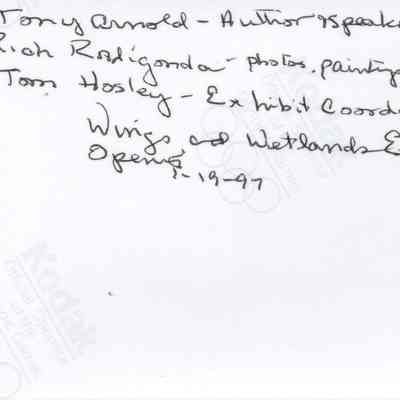 Tony Arnold - Author & speake
Rich Rodigonda - photos, painting
Tom Hosley - Exhibit Coord
Wings and Wetlands E
Opening
1-19-97
Kodak